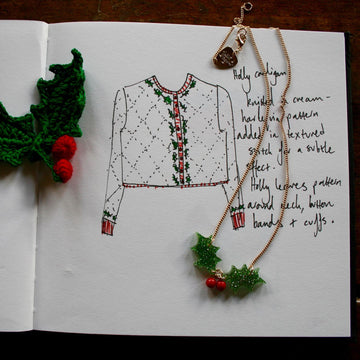 Holly cardigan
knitted in cream -
harlequin pattern
added in textured
stitch for a subtle
effect.
Holly leaves pattern
around neck, button
bands + cuffs.